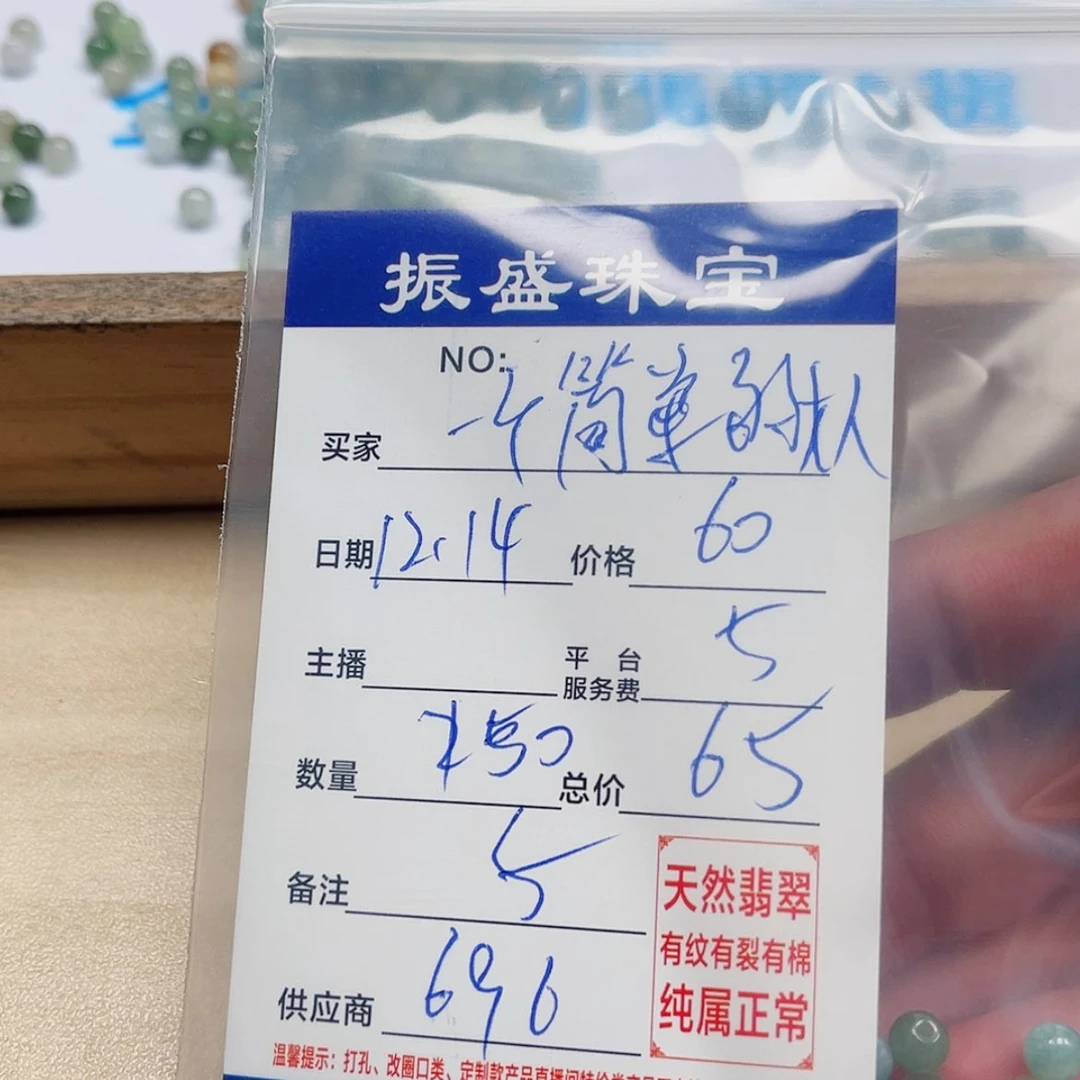 振盛珠宝
NO:
买家 一个简单的人
日期 12.14 价格 60
主播 平台服务费 5
数量 150 总价 65
备注 5
供应商 696
天然翡翠
有纹有裂有棉
纯属正常
温馨提示：打孔、改圈口类、定制款产品直播间特价类